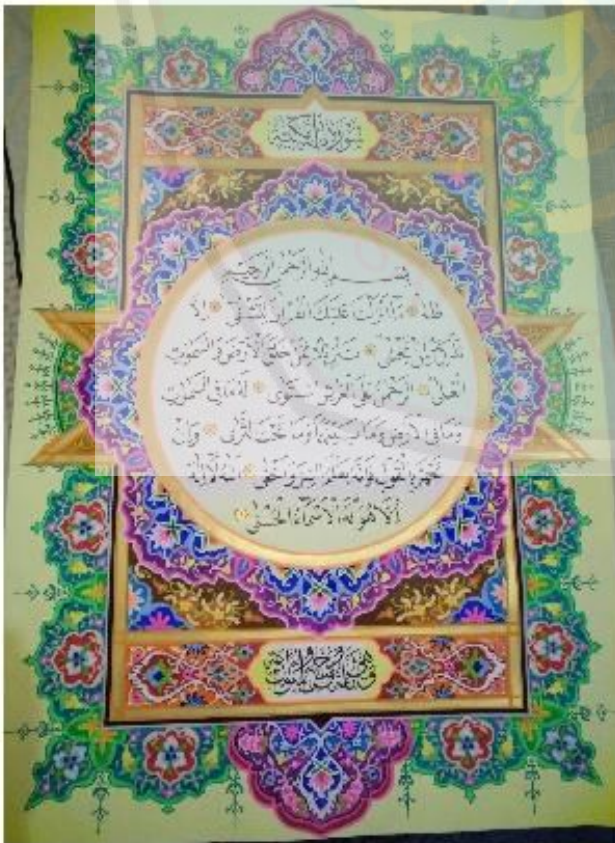 سورة طه مكية
بسم الله الرحمن الرحيم
طه ما أنزلنا عليك القرآن لتشقى إلا
تذكرة لمن يخشى تنزيلا ممن خلق الأرض والسموت
العلى الرحمن على العرش استوى له ما في السموت
وما في الأرض وما بينهما وما تحت الثرى وإن
تجهر بالقول فإنه يعلم السر وأخفى الله لا إله
إلا هو له الأسماء الحسنى